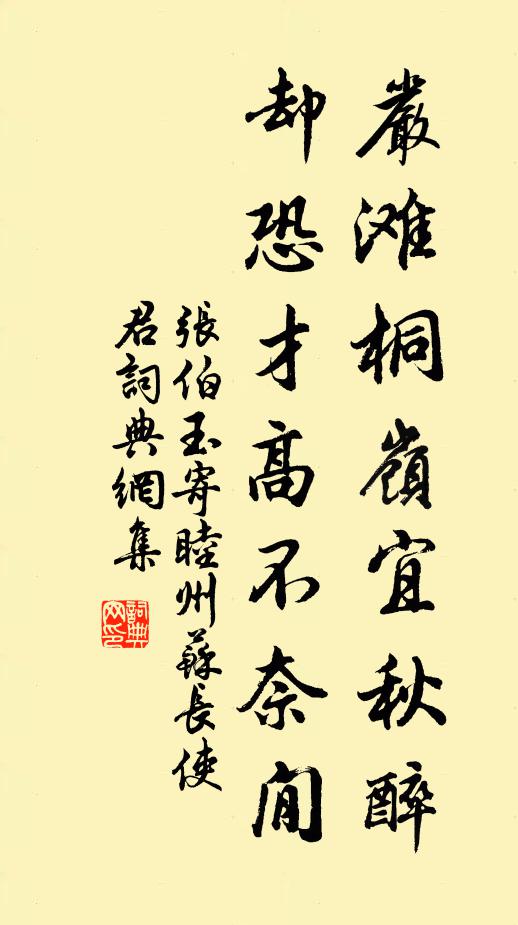 嚴滩桐嶺宜秋醉
却恐才高不奈閒
張伯玉寄睦州蘇長使
君詞典網集
詞典
网印